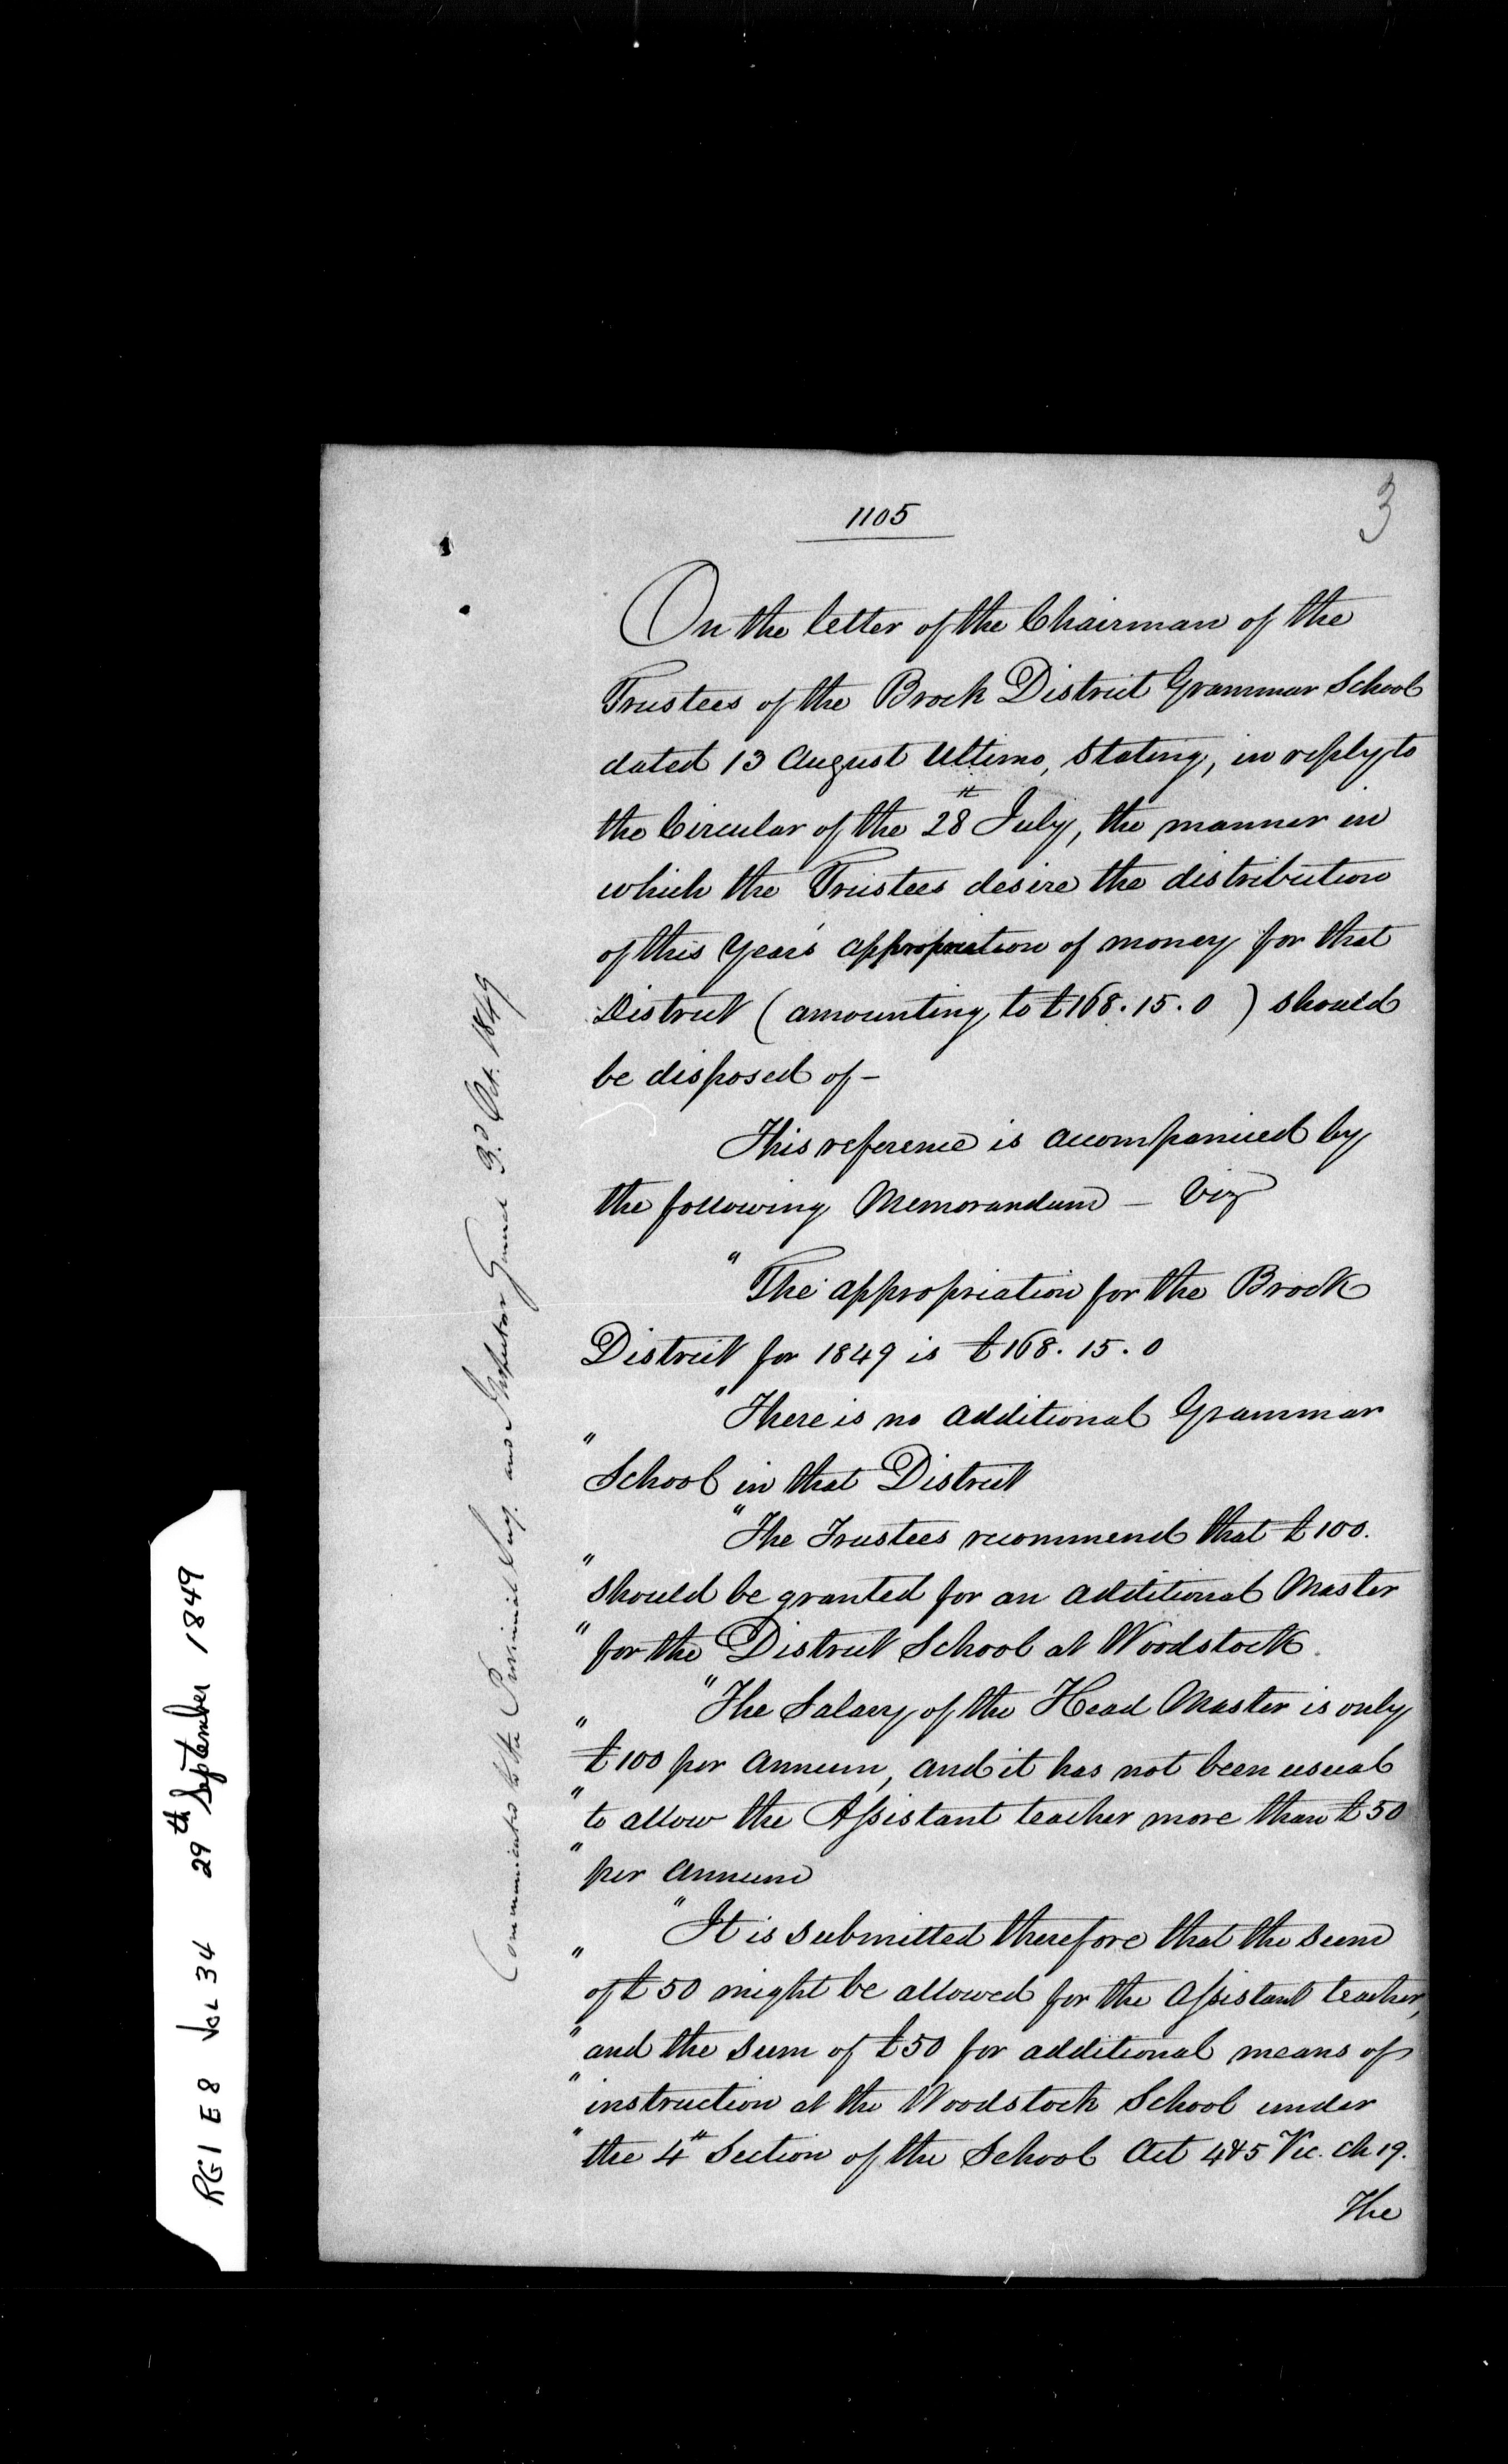 1105
3
On the letter of the Chairman of the
Trustees of the Brock District Grammar School
dated 13 August Ultimo, Stating, in reply to
the Circular of the 28th July, the manner in
which the Trustees desire the distribution
of this Year's appropriation of money for that
District (amounting to £168.15.0) should
be disposed of -
This reference is accompanied by
the following Memorandum - Viz
"The appropriation for the Brock
District for 1849 is £168.15.0
"There is no additional Grammar
" School in that District
"The Trustees recommend that £100.
" should be granted for an additional Master
" for the District School at Woodstock.
"The Salary of the Head Master is only
" £100 per Annum, and it has not been usual
" to allow the Assistant teacher more than £50
" per Annum
"It is submitted therefore that the sum
" of £50 might be allowed for the Assistant teacher,
" and the sum of £50 for additional means of
" instruction at the Woodstock School under
" the 4th Section of the School Act 4&5 Vic. Ch 19.
The
Communicated to the Provincial Secy. and Inspector General 3d Oct. 1849
RG1 E8 Vol 34 29th September 1849